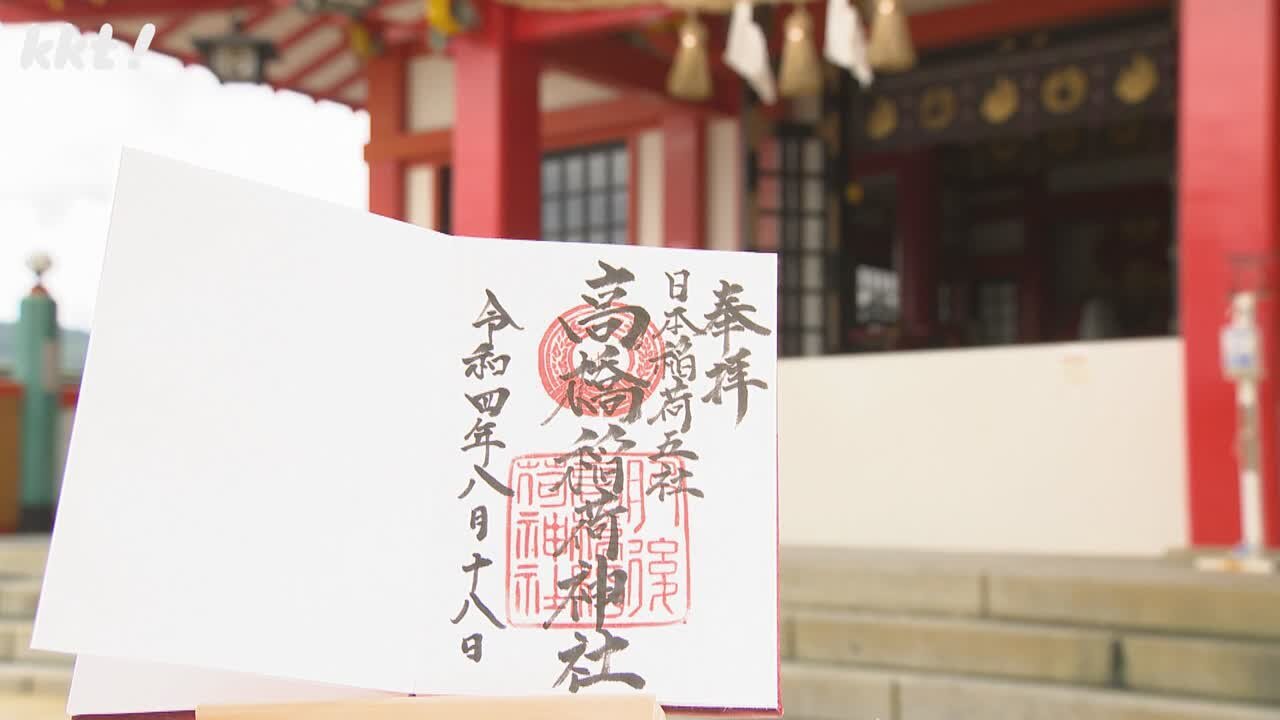 kkt!
奉拝
日本稲荷五社
高橋稲荷神社
令和四年八月十八日
肥後
荷神社